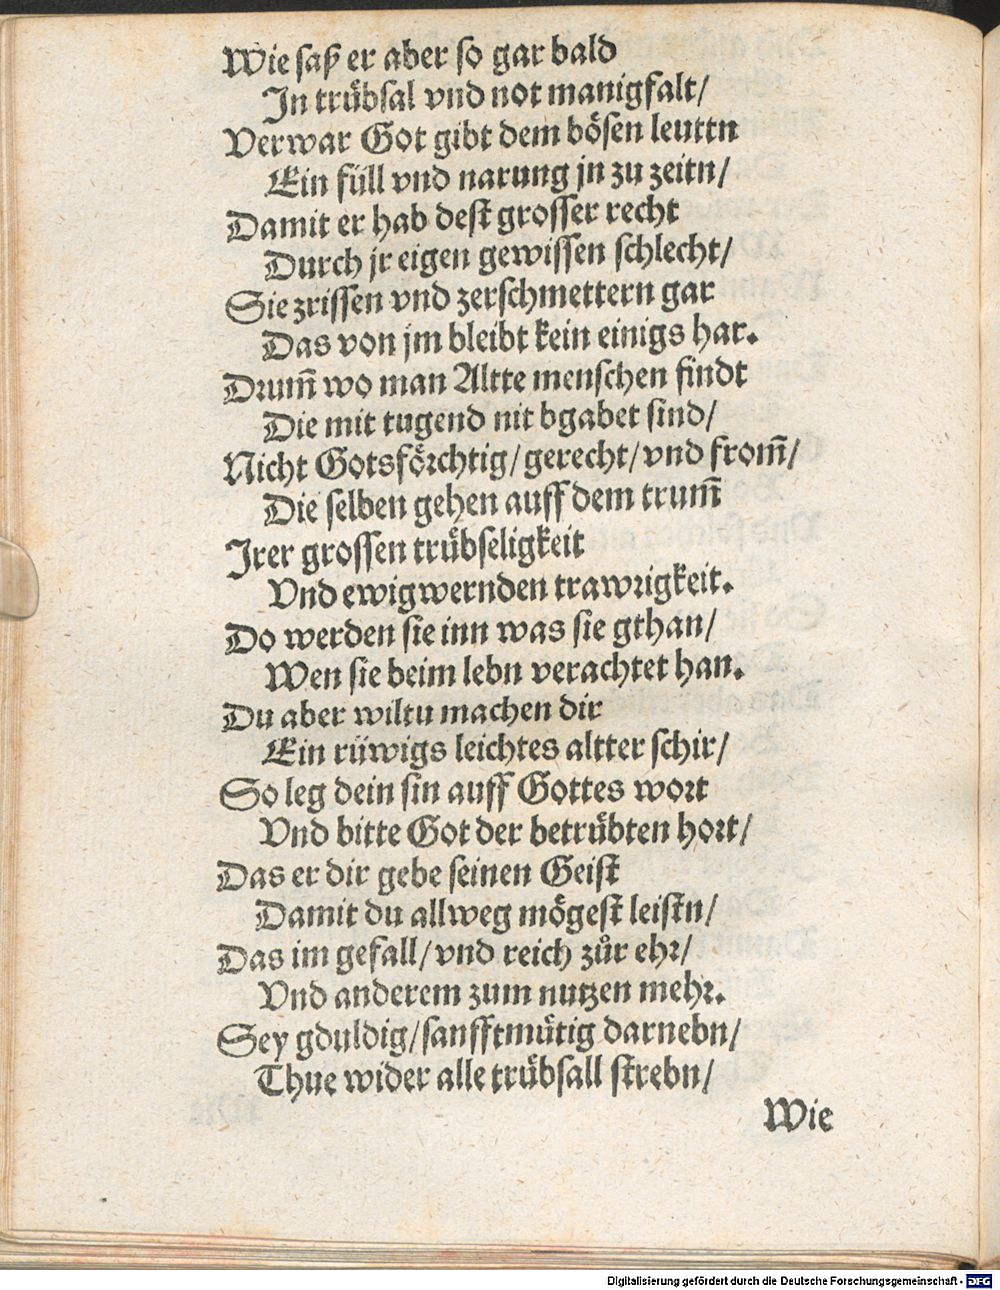 Wie saß er aber so gar bald
Jn truͤbsal vnd not manigfalt/
Verwar Got gibt dem boͤsen leuttn
Ein fuͤll vnd narung jn zu zeitn/
Damit er hab dest grosser recht
Durch jr eigen gewissen schlecht/
Sie zrissen vnd zerschmettern gar
Das von jm bleibt kein einigs har.
Drum̃ wo man Altte menschen findt
Die mit tugend nit bgabet sind/
Nicht Gotsfoͤrchtig/ gerecht/ vnd from̃/
Die selben gehen auff dem trum̃
Jrer grossen truͤbseligkeit
Vnd ewigwernden trawrigkeit.
Do werden sie inn was sie gthan/
Wen sie beim lebn verachtet han.
Du aber wiltu machen dir
Ein ruͤwigs leichtes altter schir/
So leg dein sin auff Gottes wort
Vnd bitte Got der betruͤbten hort/
Das er dir gebe seinen Geist
Damit du allweg moͤgest leistn/
Das im gefall/ vnd reich zůr ehr/
Vnd anderem zum nutzen mehr.
Sey gduldig/ sanfftmuͤtig darnebn/
Thue wider alle truͤbsall strebn/
Wie
Digitalisierung gefördert durch die Deutsche Forschungsgemeinschaft - DFG